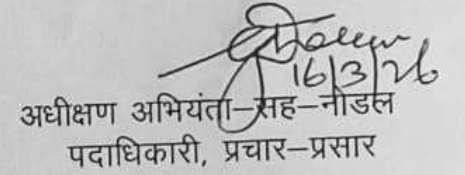 16/3/26
अधीक्षण अभियंता–सह–नोडल
पदाधिकारी, प्रचार–प्रसार